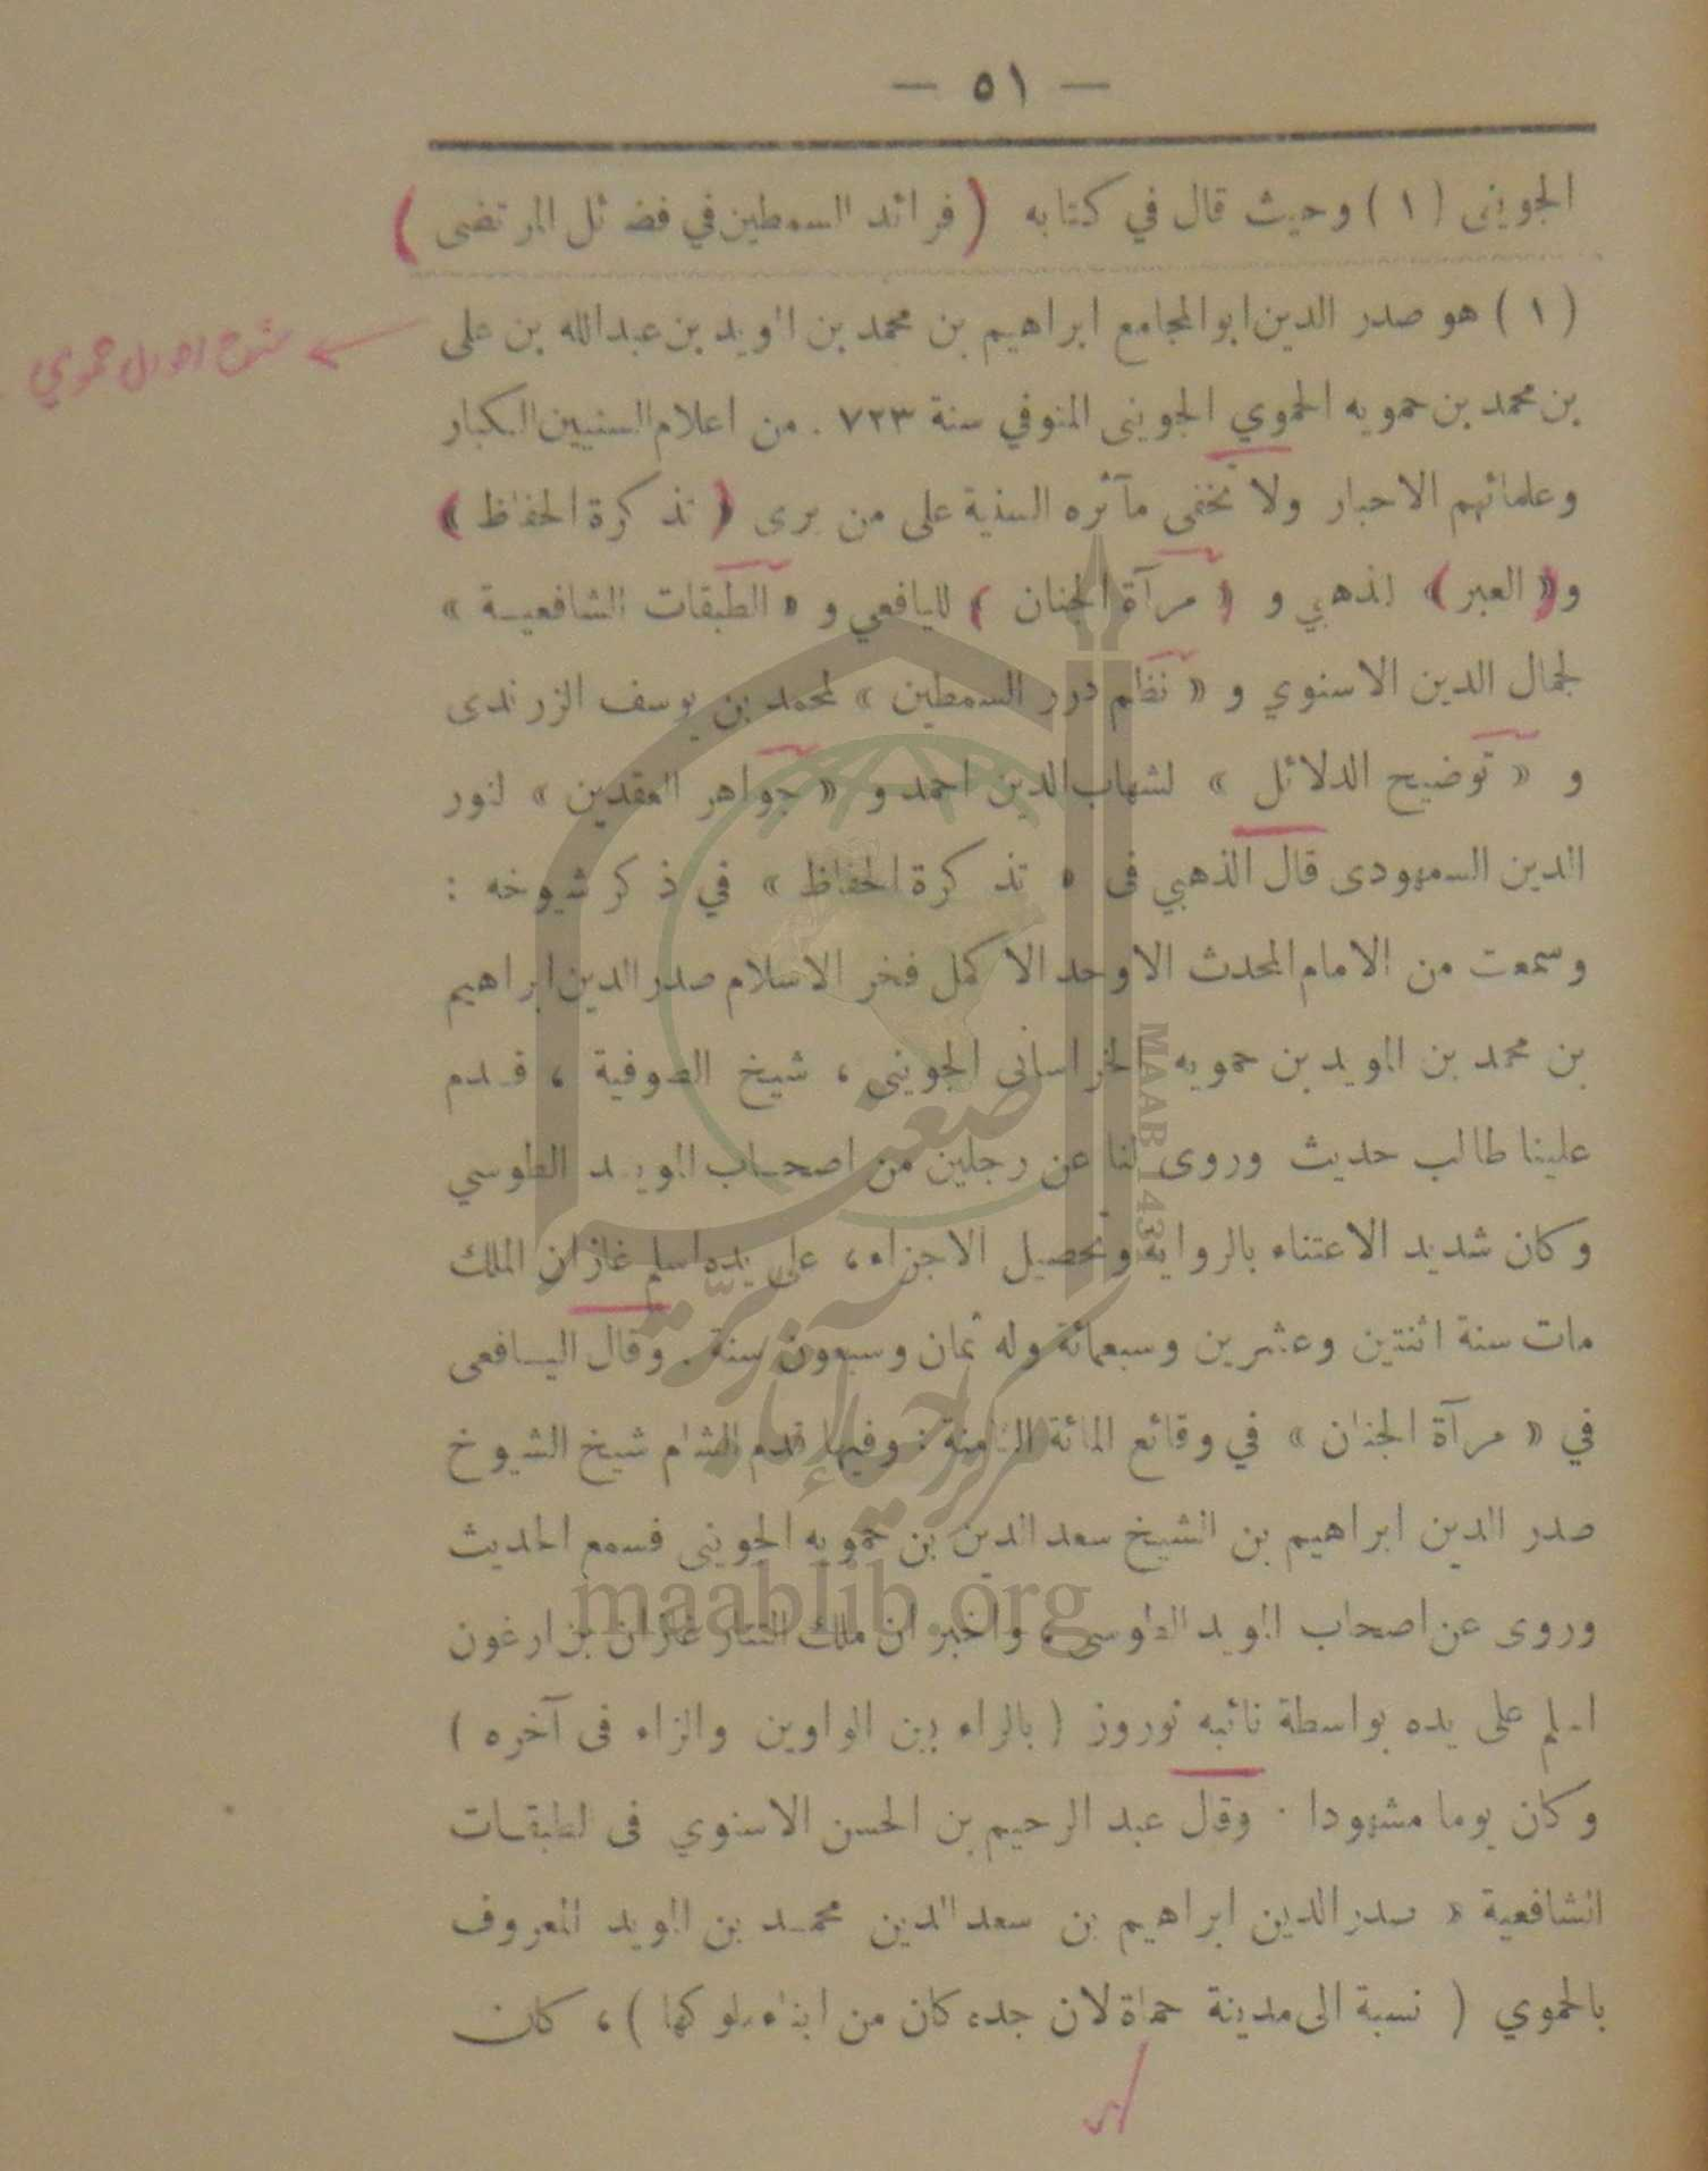 — ٥١ —
الجوينى ( ١ ) وحيث قال في كتابه ( فرائد السمطين في فضائل المرتضى )
( ١ ) هو صدر الدين ابو المجامع ابراهيم بن محمد بن المويد بن عبدالله بن على
بن محمد بن حمويه الحموي الجوينى المتوفي سنة ٧٢٣ . من اعلام السنيين الكبار
وعلمائهم الاحبار ولا تخفى مآثره السنية على من يرى « تذكرة الحفاظ »
و « العبر » للذهبي و « مرآة الجنان » لليافعي و « الطبقات الشافعيـة »
لجمال الدين الاسنوي و « نظم درر السمطين » لمحمد بن يوسف الزرندى
و « توضيح الدلائل » لشهاب الدين احمد و « جواهر العقدين » لنور
الدين السمهودى قال الذهبي فى « تذكرة الحفاظ » في ذكر شيوخه :
وسمعت من الامام المحدث الاوحد الاكمل فخر الاسلام صدر الدين ابراهيم
بن محمد بن المويد بن حمويه الخراسانى الجوينى ، شيخ الصوفية ، قـدم
علينا طالب حديث وروى لنا عن رجلين من اصحـاب المويـد الطوسي
وكان شديد الاعتناء بالرواية وتحصيل الاجزاء ، على يده اسلم غازان الملك
مات سنة اثنتين وعشرين وسبعمائة وله ثمان وسبعون سنة . وقال اليـافعى
في « مرآة الجنان » في وقائع المائة الثامنة : وفيها قدم الشام شيخ الشيوخ
صدر الدين ابراهيم بن الشيخ سعد الدين بن حمويه الجوينى فسمع الحديث
وروى عن اصحاب المويد الطوسى ، واخبر ان ملك التتار غازان بن ارغون
اسلم على يده بواسطة نائبه نوروز ( بالراء بين الواوين والزاء فى آخره )
وكان يوما مشهودا . وقال عبد الرحيم بن الحسن الاسنوي فى لطبقـات
الشافعية « صدر الدين ابراهيم بن سعد الدين محمـد بن المويد المعروف
بالحموي ( نسبة الى مدينة حماة لان جده كان من ابناء ملوكها ) ، كان
شرح احوال حموي
MAAB 1431
maablib.org